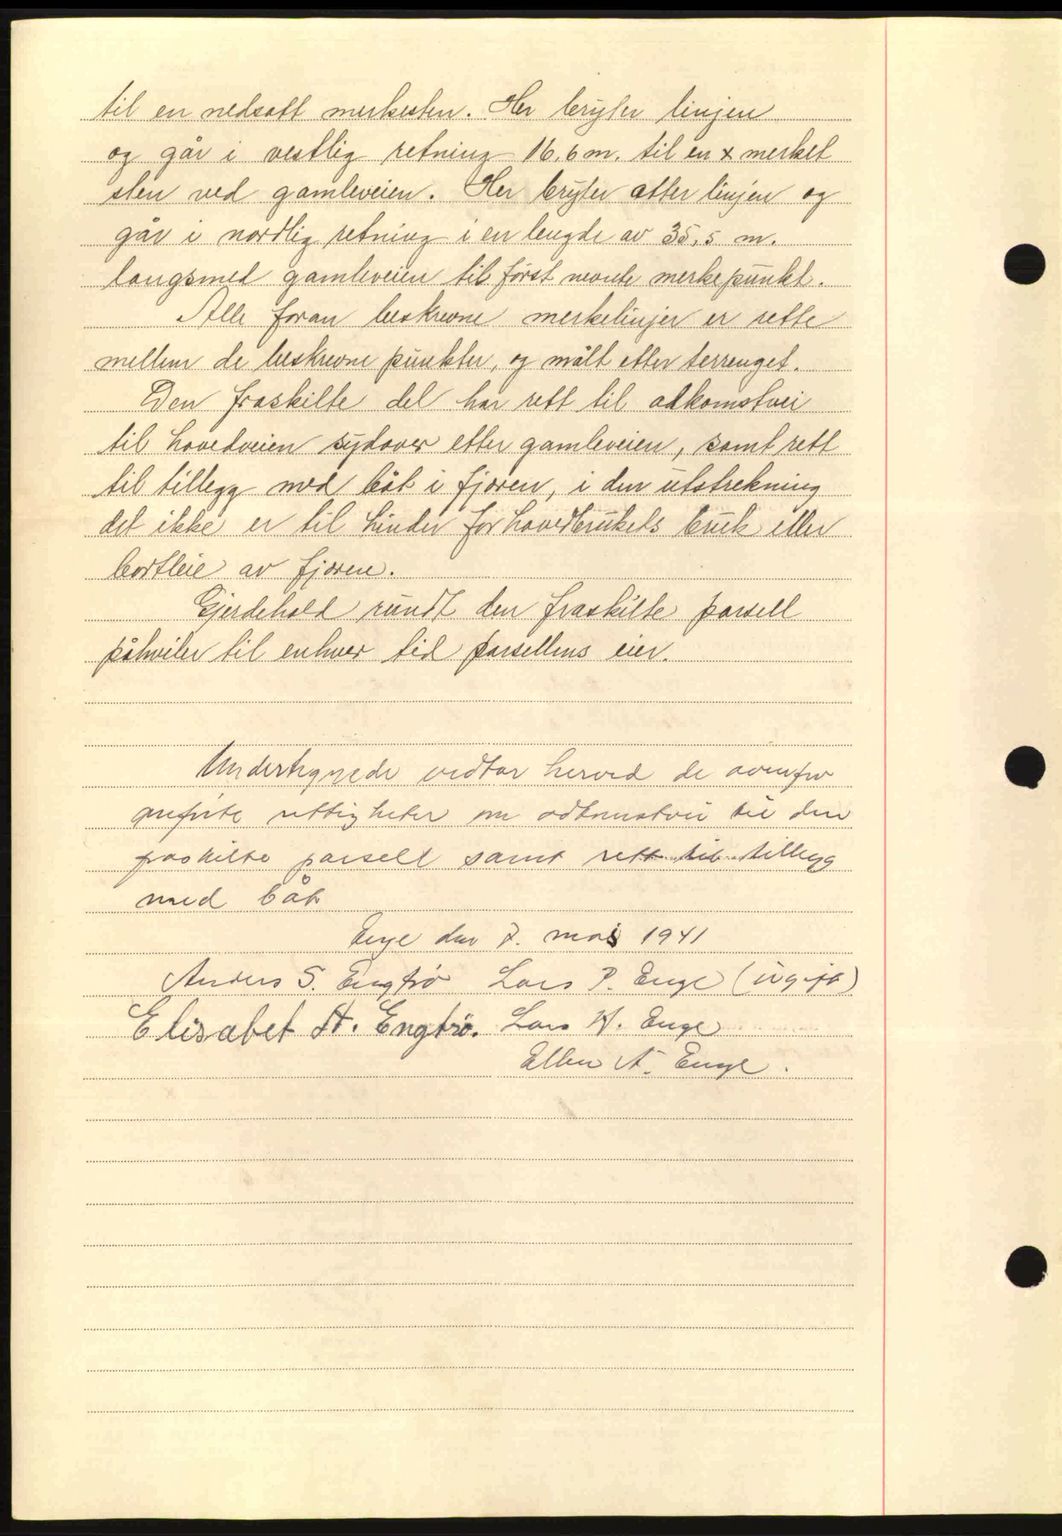 til en nedsatt merkesten. Her bryter linjen
og går i vestlig retning 16.6 m. til en x merket
sten ved gamleveien. Her bryter atter linjen og
går i nordlig retning i en lengde av 35,5 m.
langsmed gamleveien til først nevnte merkepunkt.
Alle foran beskrevne merkelinjer er rette
mellem de beskrevne punkter, og målt etter terrenget.
Den fraskilte del har rett til adkomstvei
til hovedveien sydover etter gamleveien, samt rett
til tillegg med båt i fjæren, i den utstrekning
det ikke er til hinder for hovedbrukets bruk eller
bortleie av fjæren.
Gjerdehold rundt den fraskilte parsell
påhviler til enhver tid parsellens eier.
Undertegnede vedtar herved de ovenfor
anførte rettigheter om adkomstvei til den
fraskilte parsell samt rett til tillegg
med båt
Enge den 7. mai 1941
Anders S. Engtrø Lars P. Enge (ugift)
Elisabet A. Engtrø. Lars A. Enge
Ellen A. Enge.